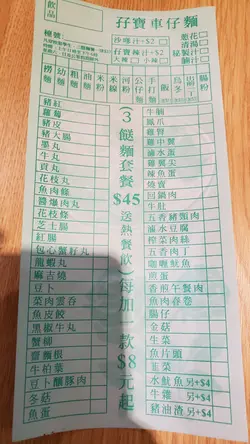 飲品
孖寶車仔麵
檯號:
沙嗲汁+$2
孖寶辣汁+$2
大辣 小辣
葱花
清湯
秘製汁
腩汁
撈麵
幼麵
粗麵
油麵
米粉
米線
公仔麵
手打麵
烏冬
腸粉
(3餸麵套餐$45送熱餐飲)每加一款$8元起
豬紅
蘿蔔
豬皮
豬大腸
墨丸
牛丸
貢丸
花枝丸
魚肉條
醬爆肉丸
花枝條
芝士腸
紅腸
包心蟹籽丸
龍蝦丸
麻吉燒
豆卜
菜肉雲吞
魚皮餃
黑椒牛丸
蟹柳
齋麵根
牛柏葉
豆卜釀豚肉
冬菇
魚蛋
牛腩
鳳爪
雞腎
雞中翼
滷水蛋
雞翼尖
辣魚蛋
燒賣
回鍋肉
牛肚
五香豬頸肉
滷水豆腐
榨菜肉絲
五香牛𦟌
咖喱魷魚
煎蛋
香煎午餐肉
魚肉春卷
腸仔
金菇
生菜
魚片頭
韮菜
水魷魚 另+$4
牛雜 另+$4
豬油渣 另+$4